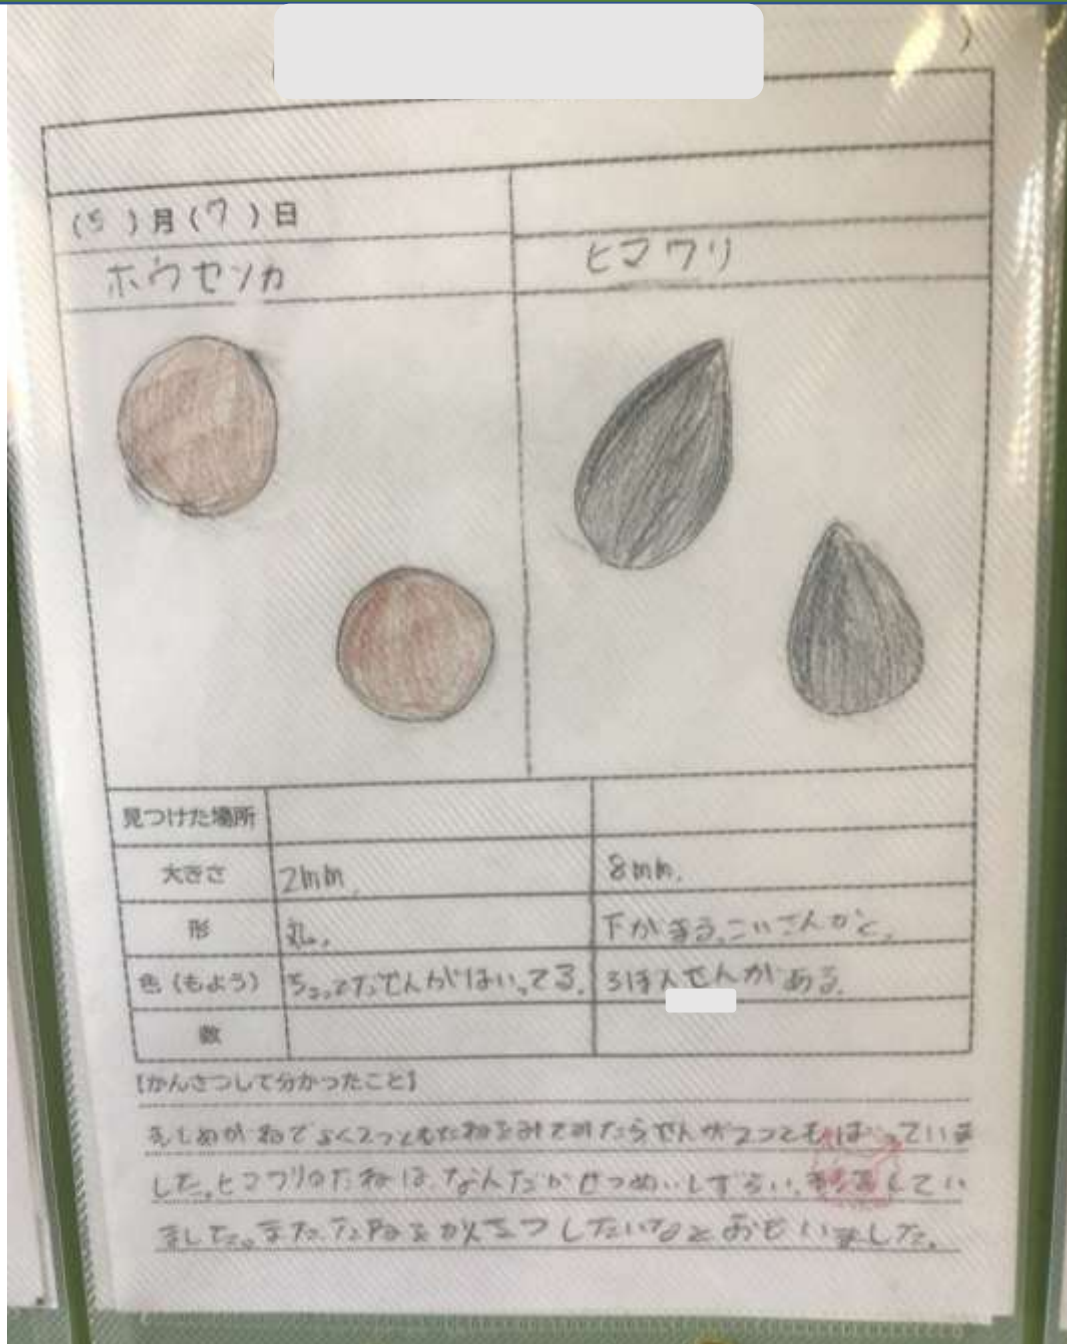 (5)月(7)日
ホウセンカ
ヒマワリ
見つけた場所
大きさ 2mm. 8mm.
形 丸。 下が まる。こい さんかく。
色(もよう) せんがはいってる。 3ぼんせんがある。
数
【かんさつして分かったこと】
むしめがねでよく2つともたねをみてみたらせんが2つともはいっていま
した。ヒマワリのたねは、なんだかせつめいしずらい、形をしてい
ました。またたねをかんさつしたいなとおもいました。